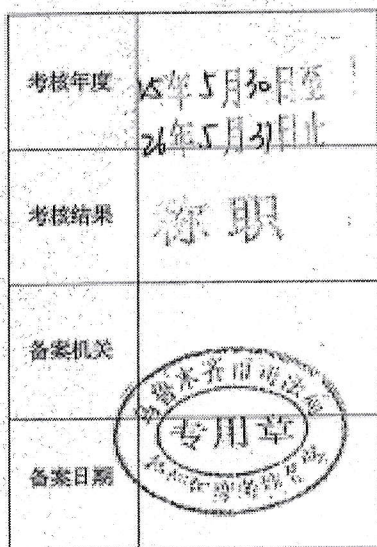 考核年度
25年5月30日至
26年5月31日止
考核结果
称职
备案机关
乌鲁木齐市司法局
专用章
备案日期